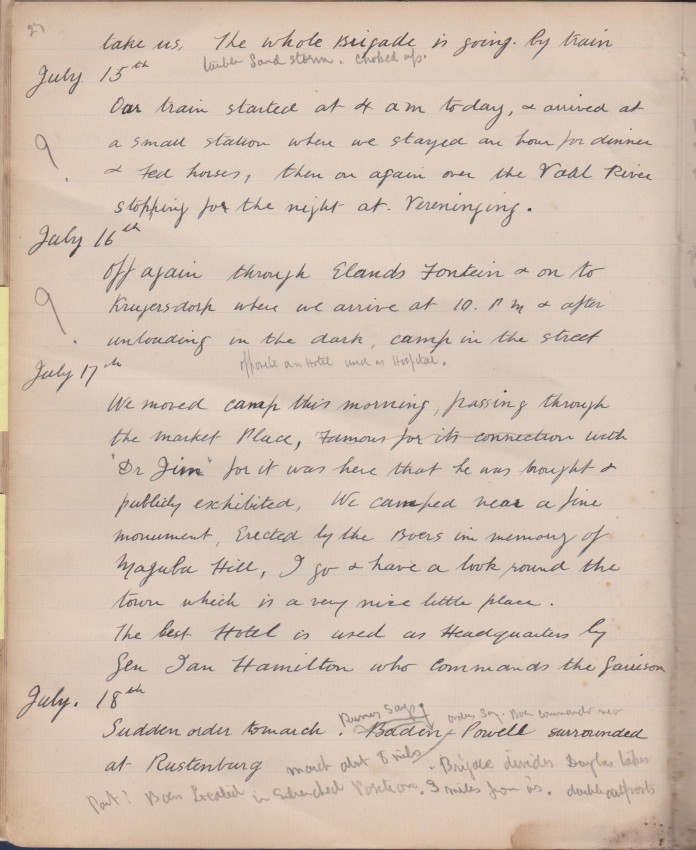 27
take us, The whole Brigade is going by train
Sand storm. choked up.
July 15th
Our train started at 4 am today, & arrived at
a small station where we stayed an hour for dinner
?
& Fed horses, then on again over the Vaal River
stopping for the night at Vereninging.
July 16th
Off again through Elands Fontein & on to
Krugersdorp where we arrive at 10. P m & after
?
unloading in the dark, camp in the street
opposite an Hotel used as Hospital.
July 17th
We moved camp this morning, passing through
the market Place, Famous for its connection with
"Dr Jim" for it was here that he was brought &
publicly exhibited, We camped near a fine
monument, Erected by the Boers in memory of
Majuba Hill, I go & have a look round the
town which is a very nice little place.
The best Hotel is used as Headquarters by
Gen Ian Hamilton who commands the Garrison
July. 18th
Rumour says orders say. Boer commander near
Sudden order to march. Baden-Powell surrounded
at Rustenburg march abt 8 miles. Brigade divides Douglas takes
Part? Boers located in Entrenched Position. 3 miles from us. double outposts